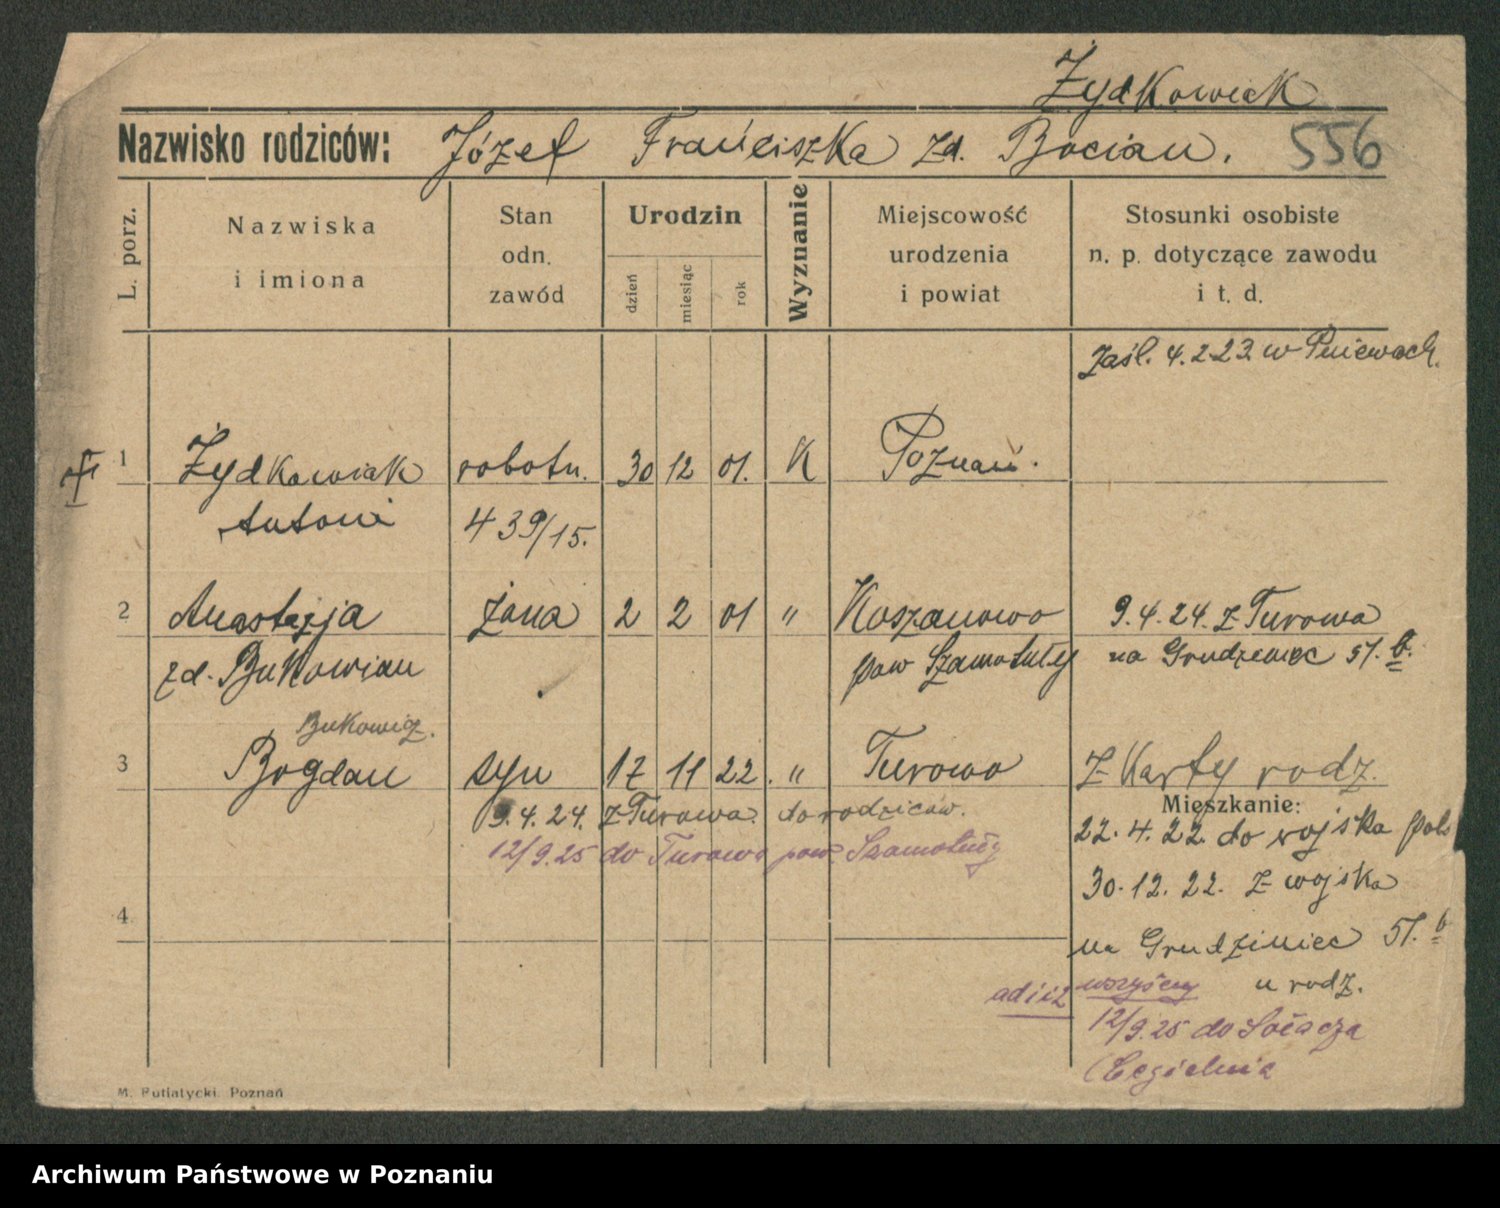 Żydkowiak
Nazwisko rodziców: Józef Franciszka zd. Bocian. 556
L. porz.
Nazwiska
i imiona
Stan
odn.
zawód
Urodzin
dzień
miesiąc
rok
Wyznanie
Miejscowość
urodzenia
i powiat
Stosunki osobiste
n. p. dotyczące zawodu
i t. d.
Zaśl. 4.2.23. w Pniewach.
1 Żydkowiak robotn. 30 12 01. K Poznań.
Antoni 439/15.
2 Anastazja żona 2 2 01 " Koszanowo 9.4.24. z Turowa
zd. Bukowian pow Szamotuły na Grudzieniec 51.
Bukowicz.
3 Bogdan syn 17 11 22. " Turowo Z Karty rodz.
Mieszkanie:
9.4.24. z Turowa do rodziców. 22.4.22. do wojska pols
12/9.25 do Turowo pow Szamotuły
30.12.22. z wojska
4
na Grudziniec 51. b
u rodz.
ad 1 i 2 wszyscy
12/9.25 do Sołacza
(Cegielnia
M. Putiatycki. Poznań
Archiwum Państwowe w Poznaniu